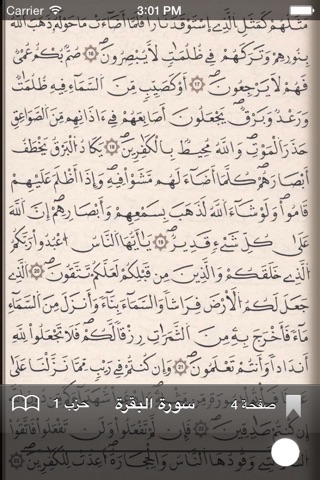 Carrier 3:01 PM
مَثَلُهُمْ كَمَثَلِ اِلذِے اِسْتَوْقَدَ نَاراٗ فَلَمَّآ أَضَآءَتْ مَا حَوْلَهُۥ ذَهَبَ اَللَّهُ
بِنُورِهِمْ وَتَرَكَهُمْ فِے ظُلُمَٰتٖ لَّا يُبْصِرُونَۖ ١٦ صُمُّۢ بُكْمٌ عُمْيٞ
فَهُمْ لَا يَرْجِعُونَۖ ١٧ أَوْ كَصَيِّبٖ مِّنَ اَلسَّمَآءِ فِيهِ ظُلُمَٰتٞ
وَرَعْدٞ وَبَرْقٞۖ يَجْعَلُونَ أَصَٰبِعَهُمْ فِےٓ ءَاذَانِهِم مِّنَ اَلصَّوَٰعِقِ
حَذَرَ اَلْمَوْتِۖ وَاللَّهُ مُحِيطُۢ بِالْكَٰفِرِينَۖ ١٨ يَكَادُ اُلْبَرْقُ يَخْطَفُ
أَبْصَٰرَهُمْۖ كُلَّمَآ أَضَآءَ لَهُم مَّشَوْاْ فِيهِۖ وَإِذَآ أَظْلَمَ عَلَيْهِمْ
قَامُواْۖ وَلَوْ شَآءَ اَللَّهُ لَذَهَبَ بِسَمْعِهِمْ وَأَبْصَٰرِهِمْۖ إِنَّ اَللَّهَ
عَلَيٰ كُلِّ شَےْءٖ قَدِيرٞۖ ١٩ يَٰٓأَيُّهَا اَلنَّاسُ اُعْبُدُواْ رَبَّكُمُ
اُلذِے خَلَقَكُمْ وَالذِينَ مِن قَبْلِكُمْ لَعَلَّكُمْ تَتَّقُونَۖ ٢٠ اَلذِے
جَعَلَ لَكُمُ اُلْأَرْضَ فِرَٰشاٗ وَالسَّمَآءَ بِنَآءٗ وَأَنزَلَ مِنَ اَلسَّمَآءِ
مَآءٗ فَأَخْرَجَ بِهِۦ مِنَ اَلثَّمَرَٰتِ رِزْقاٗ لَّكُمْۖ فَلَا تَجْعَلُواْ لِلهِ
أَندَاداٗ وَأَنتُمْ تَعْلَمُونَۖ ٢١ وَإِن كُنتُمْ فِے رَيْبٖ مِّمَّا نَزَّلْنَا عَلَيٰ
صفحة 4 سورة البقرة حزب 1
كُنتُمْ صَٰدِقِينَۖ ٢٢ فَإِن لَّمْ تَفْعَلُواْ وَلَن تَفْعَلُواْ فَاتَّقُواْ
اُلتِے وَقُودُهَا اَلنَّاسُ وَالْحِجَارَةُ أُعِدَّتْ لِلْكَٰفِرِينَۖ